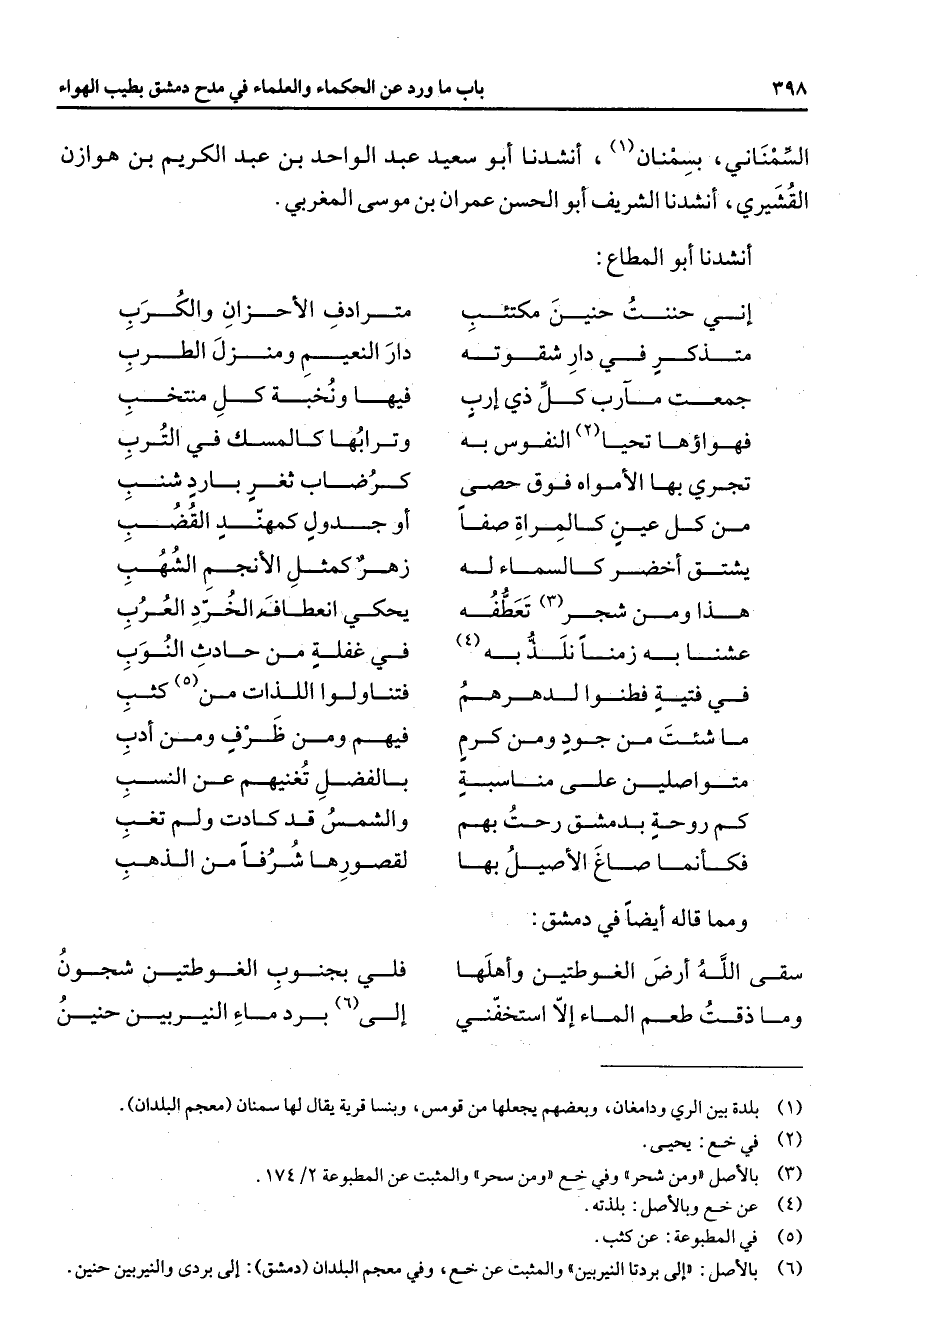 ٣٩٨ باب ما ورد عن الحكماء والعلماء في مدح دمشق بطيب الهواء
السِّمْنَاني، بسِمْنان(١)، أنشدنا أبو سعيد عبد الواحد بن عبد الكريم بن هوازن
القُشَيري، أنشدنا الشريف أبو الحسن عمران بن موسى المغربي.
أنشدنا أبو المطاع:
إنـي حننـتُ حنيـنَ مكتئـبِ متـرادفِ الأحـزانِ والكُـرَبِ
متـذكـرٍ فـي دارِ شقـوتـه دارَ النعيـم ومنـزلَ الطـربِ
جمعـت مـآرب كـلِّ ذي إربٍ فيهـا ونُخبـة كـلِ منتخـبِ
فهـواؤهـا تحيـا(٢) النفوس بـه وتـرابُهـا كـالمسـك فـي التُربِ
تجـري بهـا الأمـواه فـوق حصى كـرُضـاب ثغـرٍ بـاردٍ شنـبِ
مـن كـل عيـنٍ كـالمـراةِ صفـاً أو جـدولٍ كمهنّـد القُضُـبِ
يشتـق أخضـر كـالسمـاء لـه زهـرٌ كمثـلِ الأنجـمِ الشُهُـبِ
هـذا ومـن شجـر(٣) تَعَطُّفُـه يحكـي انعطـافَ الخُرّدِ العُرُبِ
عشنـا بـه زمنـاً نَلَـذُّ بـه(٤) فـي غفلـةٍ مـن حـادثِ النُّوَبِ
فـي فتيـةٍ فطنـوا لـدهـرهـمُ فتنـاولـوا اللـذات مـن(٥) كثـبِ
مـا شئـتَ مـن جـودٍ ومن كـرمٍ فيهـم ومـن ظَـرْفٍ ومـن أدبِ
متـواصليـن علـى منـاسبـةٍ بـالفضـل تُغنيهـم عـن النسـبِ
كـم روحـةٍ بـدمشـق رحـتُ بهـم والشمـسُ قـد كـادت ولـم تغـبِ
فكـأنمـا صـاغَ الأصيـلُ بهـا لقصـورِهـا شُرُفـاً مـن الذهـبِ
ومما قاله أيضاً في دمشق:
سقـى اللَّهُ أرضَ الغـوطتيـن وأهلَهـا فلـي بجنـوبِ الغـوطتيـن شجـونُ
ومـا ذقـتُ طعـم المـاء إلاّ استخفّنـي إلـى(٦) بـرد مـاءِ النيـربيـن حنيـنُ
(١) بلدة بين الري ودامغان، وبعضهم يجعلها من قومس، وبنسا قرية يقال لها سمنان (معجم البلدان).
(٢) في خع: يحيى.
(٣) بالأصل «ومن شحر» وفي خع «ومن سحر» والمثبت عن المطبوعة ٢/ ١٧٤.
(٤) عن خع وبالأصل: بلذته.
(٥) في المطبوعة: عن كثب.
(٦) بالأصل: «إلى بردتا النيربين» والمثبت عن خع، وفي معجم البلدان (دمشق): إلى بردى والنيربين حنين.